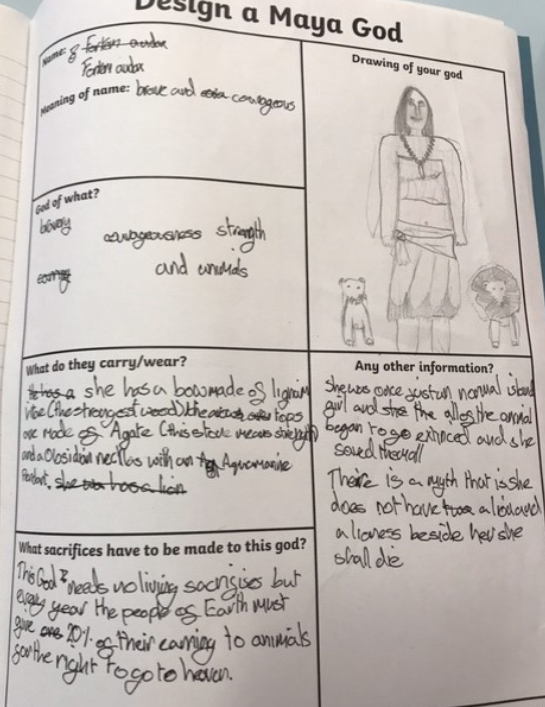 Design a Maya God
Name:
Meaning of name: brave and courageous
God of what?
bravery
courageousness strength
and animals
Drawing of your god
What do they carry/wear?
she has a bow made of lignim
Vitae (the strongest wood) the tops
are made of Agate (this stone means strength)
and a Obsidian necklas with an Aquamarine
Pendant, she has a lion
What sacrifices have to be made to this god?
This God needs no living sacrifises but
every year the people of Earth must
give 20% of their earning to animals
for the right to go to heaven.
Any other information?
She was once just an normal island
girl and the all of the animal
began to go extinced and she
saved them all
There is a myth that is she
does not have a lion and
a lioness beside her she
shall die